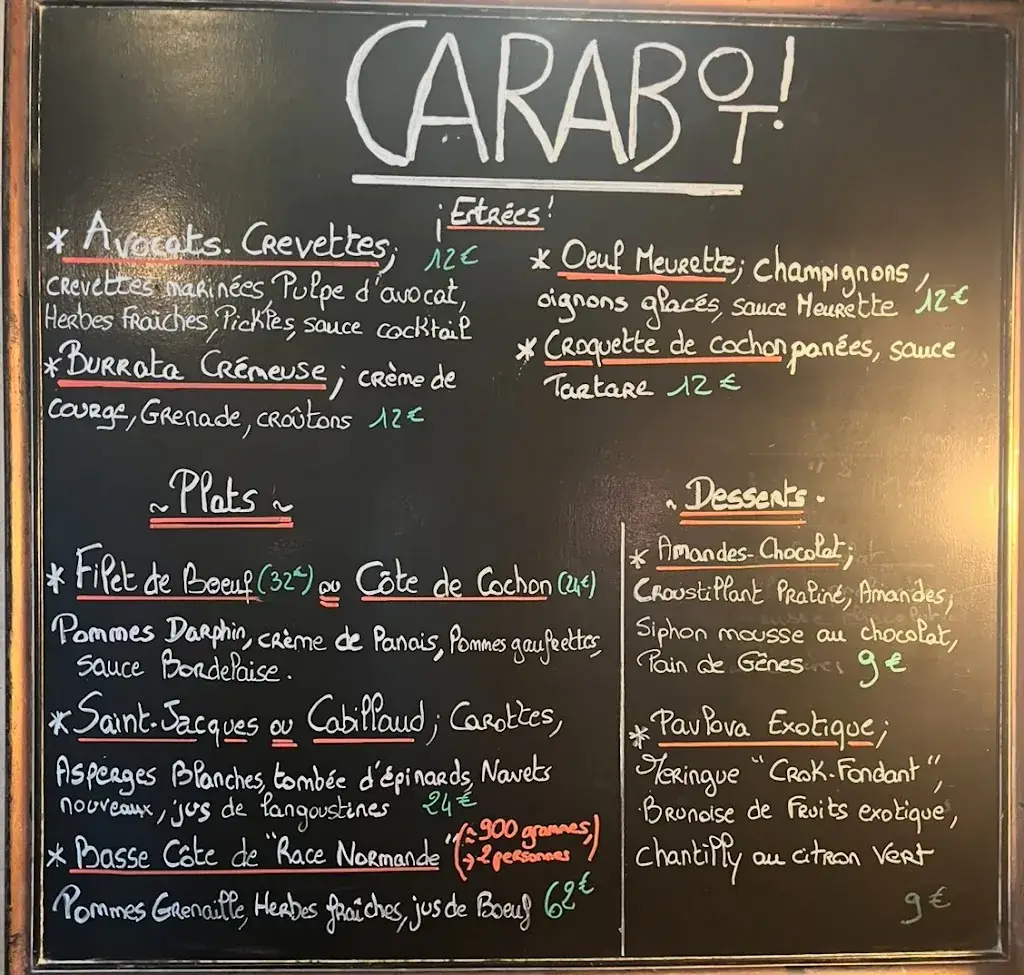 CARABOT!
¡Entrées!
* Avocats-Crevettes; 12€
crevettes marinées, Pulpe d'avocat,
Herbes Fraîches, Pickles, sauce cocktail
* Burrata Crémeuse; crème de
courge, Grenade, croûtons 12€
* Oeuf Meurette; Champignons,
oignons glacés, sauce Meurette 12€
* Croquette de cochon panées, sauce
Tartare 12€
~ Plats ~
* Filet de Boeuf (32€) ou Côte de Cochon (24€)
Pommes Darphin, crème de Panais, Pommes gaufrettes,
sauce Bordelaise.
* Saint-Jacques ou Cabillaud; Carottes,
Asperges Blanches, tombée d'épinards, Navets
nouveaux, jus de langoustines 24€
* Basse Côte de "Race Normande" (≃ 900 grammes,
→ 2 personnes)
Pommes Grenaille, Herbes fraîches, jus de Boeuf 62€
~ Desserts -
* Amandes-Chocolat;
Croustillant Praliné, Amandes,
Siphon mousse au chocolat,
Pain de Gênes 9€
* Pavlova Exotique;
Meringue "Crok-Fondant",
Brunoise de Fruits exotique,
Chantilly au citron vert
9€